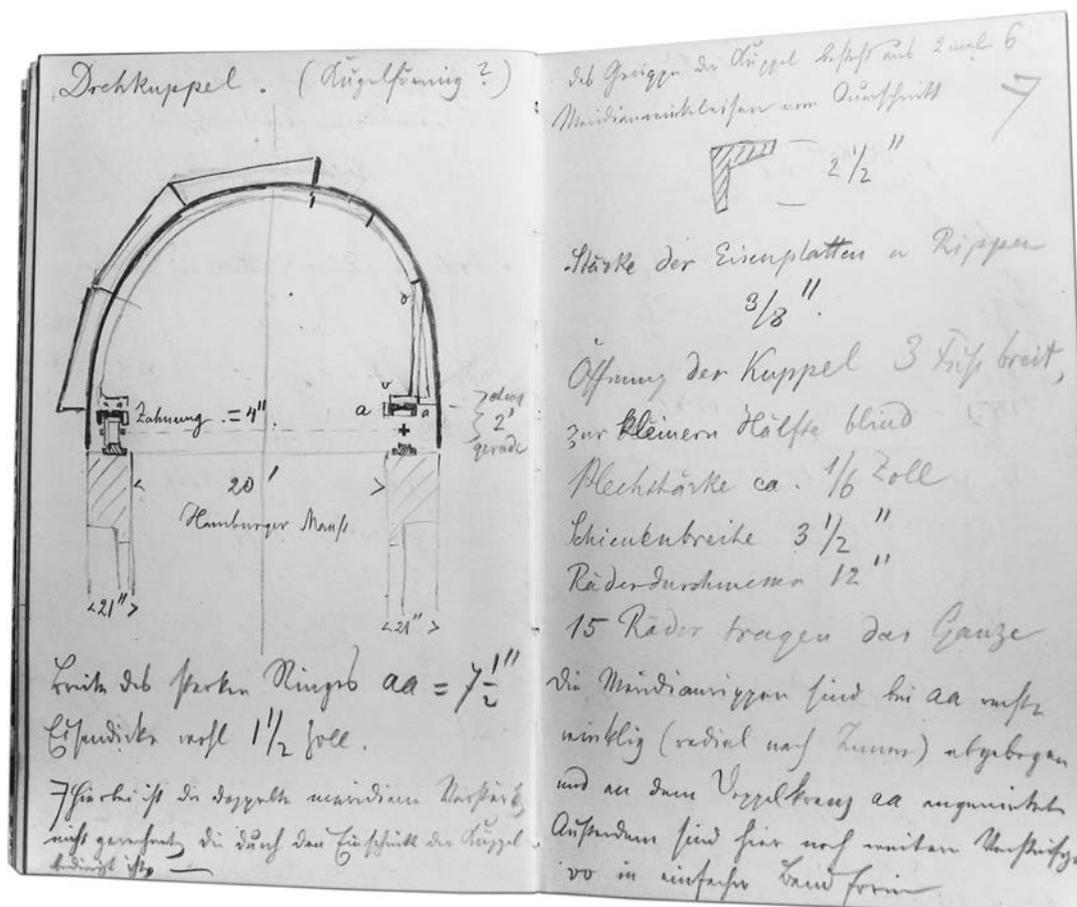 Drehkuppel. (Kugelförmig?)
Zahnung = 4"
v
v
a
a
etwa
2'
gerade
20'
Hamburger Maaß
<21">
<21">
Breite des starken Ringes aa = 7 1/2"
Eisendicke wohl 1 1/2 Zoll.
Hierbei ist die doppelte meridiane
nicht gerechnet, die durch den Einschnitt der Kuppel
bedingt ist. —
das Gerippe der Kuppel besteht aus 2 mal 6
Meridianwinkeleisen vom Querschnitt
2 1/2"
Stärke der Eisenplatten u Rippen
3/8".
Öffnung der Kuppel 3 Fuß breit,
zur kleinern Hälfte blind
Blechstärke ca. 1/6 Zoll
Schienenbreite 3 1/2"
Räderdurchmesser 12"
15 Räder tragen das Ganze
Die Meridianrippen sind bei aa recht-
winklig (radial nach Innen) abgebogen
und an dem Doppelkranz aa angenietet
Außerdem sind hier noch weitere
vv in einfacher Bandform